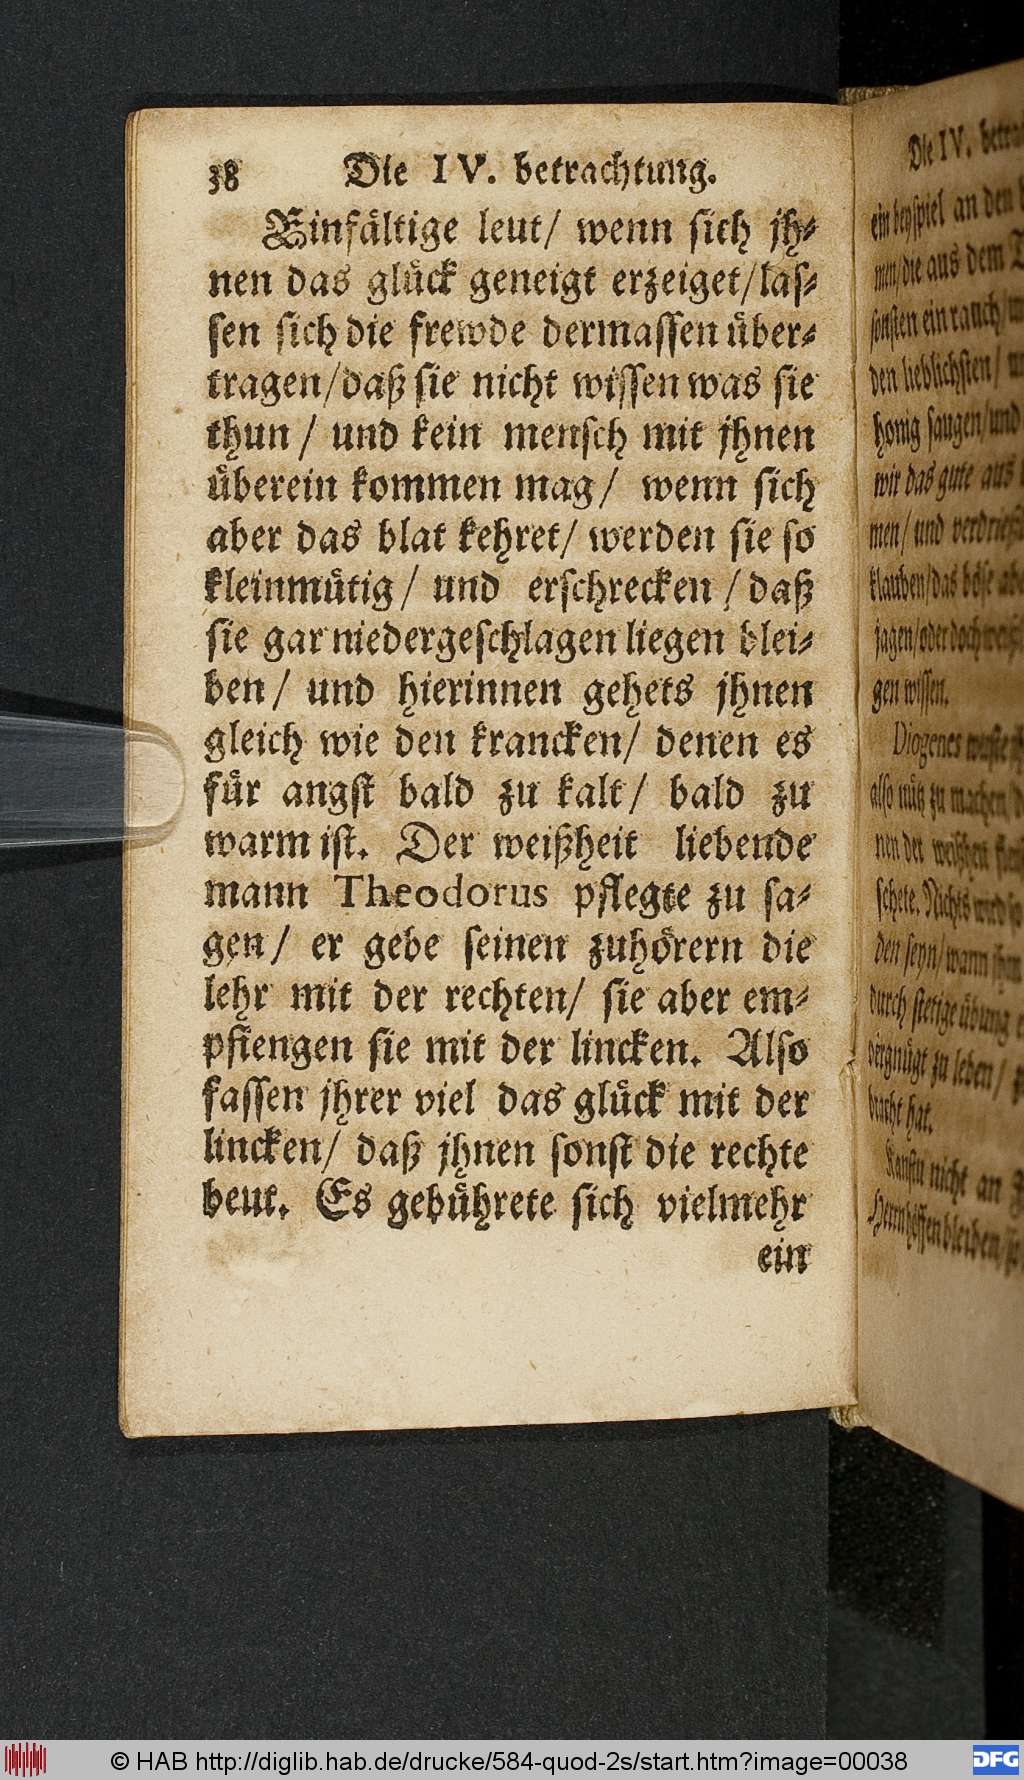 38 Die IV. betrachtung.
Einfältige leut/ wenn sich jh-
nen das glück geneigt erzeiget/las-
sen sich die frewde dermassen über-
tragen/daß sie nicht wissen was sie
thun/ und kein mensch mit jhnen
überein kommen mag/ wenn sich
aber das blat kehret/ werden sie so
kleinmütig/ und erschrecken/daß
sie gar niedergeschlagen liegen blei-
ben/ und hierinnen gehets jhnen
gleich wie den krancken/ denen es
für angst bald zu kalt/ bald zu
warm ist. Der weißheit liebende
mann Theodorus pflegte zu sa-
gen/ er gebe seinen zuhörern die
lehr mit der rechten/ sie aber em-
pfiengen sie mit der lincken. Also
fassen jhrer viel das glück mit der
lincken/ daß jhnen sonst die rechte
beut. Es gebührete sich vielmehr
ein
Die IV.
ein beyspiel an den
men/die aus dem
sonsten ein rauch
den lieblichsten/
honig saugen/und
wir das gute aus
men/ und
klauben/das böse
jagen/oder
gen wissen.
Diogenes
also nütz zu machen
nen der
schete. Nichts wird
den seyn/wann
durch stetige übung
vergnügt zu leben/
bracht hat.
Kanstu nicht an
bleiben
© HAB http://diglib.hab.de/drucke/584-quod-2s/start.htm?image=00038
DFG